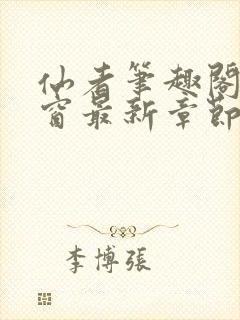 仙者筆趣閣
窗最新章節
李博張